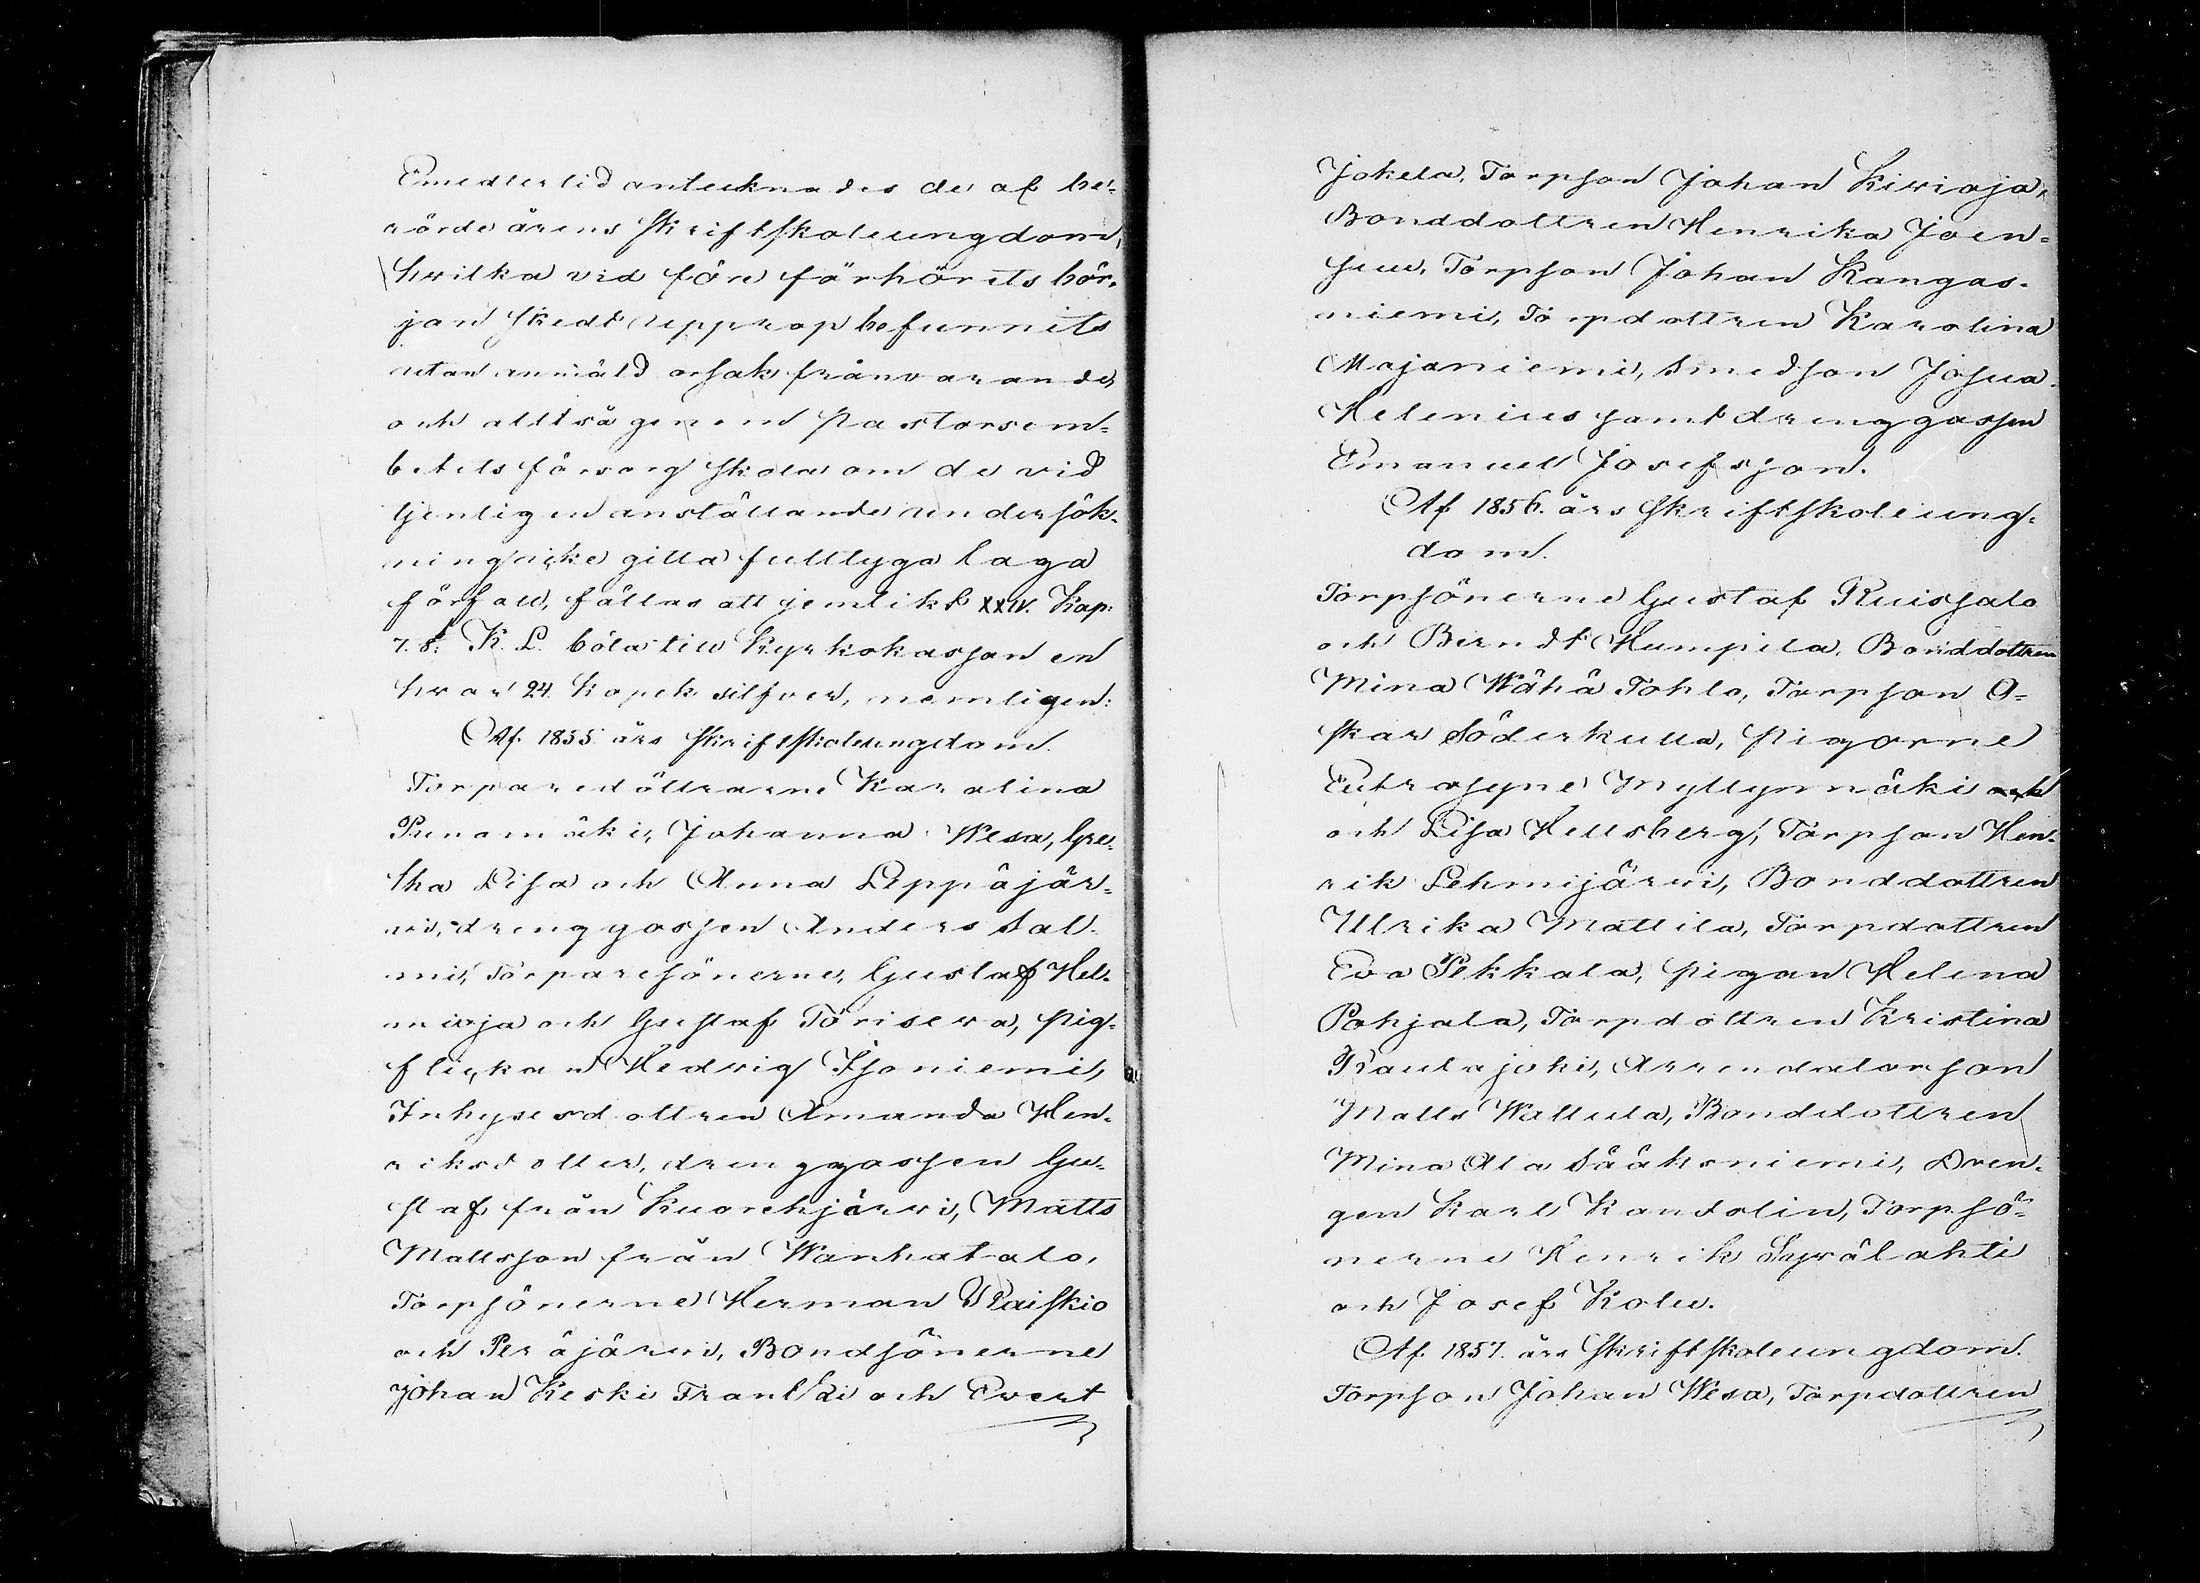 Emedlertid antecknades de af be-
rörde årens Skriftskoleungdom,
hvilka vid före förhörets bör-
jan skedt upprop befunnits
utan anmäld orsak frånvarande
och alltså genom Pastorsem-
betets försorg skola om de vid
tjenligen anställande undersök-
ning icke gitta fulltyga laga
förfall, fällas att jemlikt XXIV. Kap:
7. §. K. L. böta till Kyrkokassan en
hvar 24. kopek silfver, nemligen:
Af 1855 års Skriftskoleungdom.
Torparedöttrarne Karolina
Punamäki, Johanna Wesa, Gre-
tha Lisa och Anna Leppäjär-
vi, drenggossen Anders Sal-
mi, Torparesönerne, Gustaf Hel-
mioja och Gustaf Töriseva, Pig-
flickan Hedvig Isoniemi,
Inhysesdottren Amanda Hen-
riksdotter, drenggossen Gu-
staf från Kuorehjärvi, Matts
Mattsson från Wanhatalo,
Torpsönerne Herman Raiskio
och Peräjärvi, Bondsönerne
Johan Keski Frantti och Evert
Jokela, Torpson Johan Kivioja,
Bonddottren Henrika Joen-
suu, Torpson Johan Kangas-
niemi, Torpdottren Karolina
Majaniemi, Smedson Josua
Helenius samt drenggossen
Emanuel Josefsson.
Af 1856. års Skriftskoleung-
dom.
Torpsönerne Gustaf Ruissalo
och Berndt Humpila, Bonddottren
Mina Wähä Tohlo, Torpson O-
skar Söderkulla, Pigorne
Eufrosyne Myllynmäki
och Lisa Hellsberg, Torpson Hen-
rik Lehmijärvi, Bonddottren
Ulrika Mattila, Torpdottren
Eva Pekkala, Pigan Helena
Pohjala, Torpdottren Kristina
Rautajoki, Arrendatorson
Matts Wallula, Bonddottren
Mina Ala Sääksniemi, Dren-
gen Karl Kandolin, Torpsö-
nerne Henrik Syvälahti
och Josef Kolu.
Af 1857. års Skriftskoleungdom.
Torpson Johan Wesa, Torpdottren